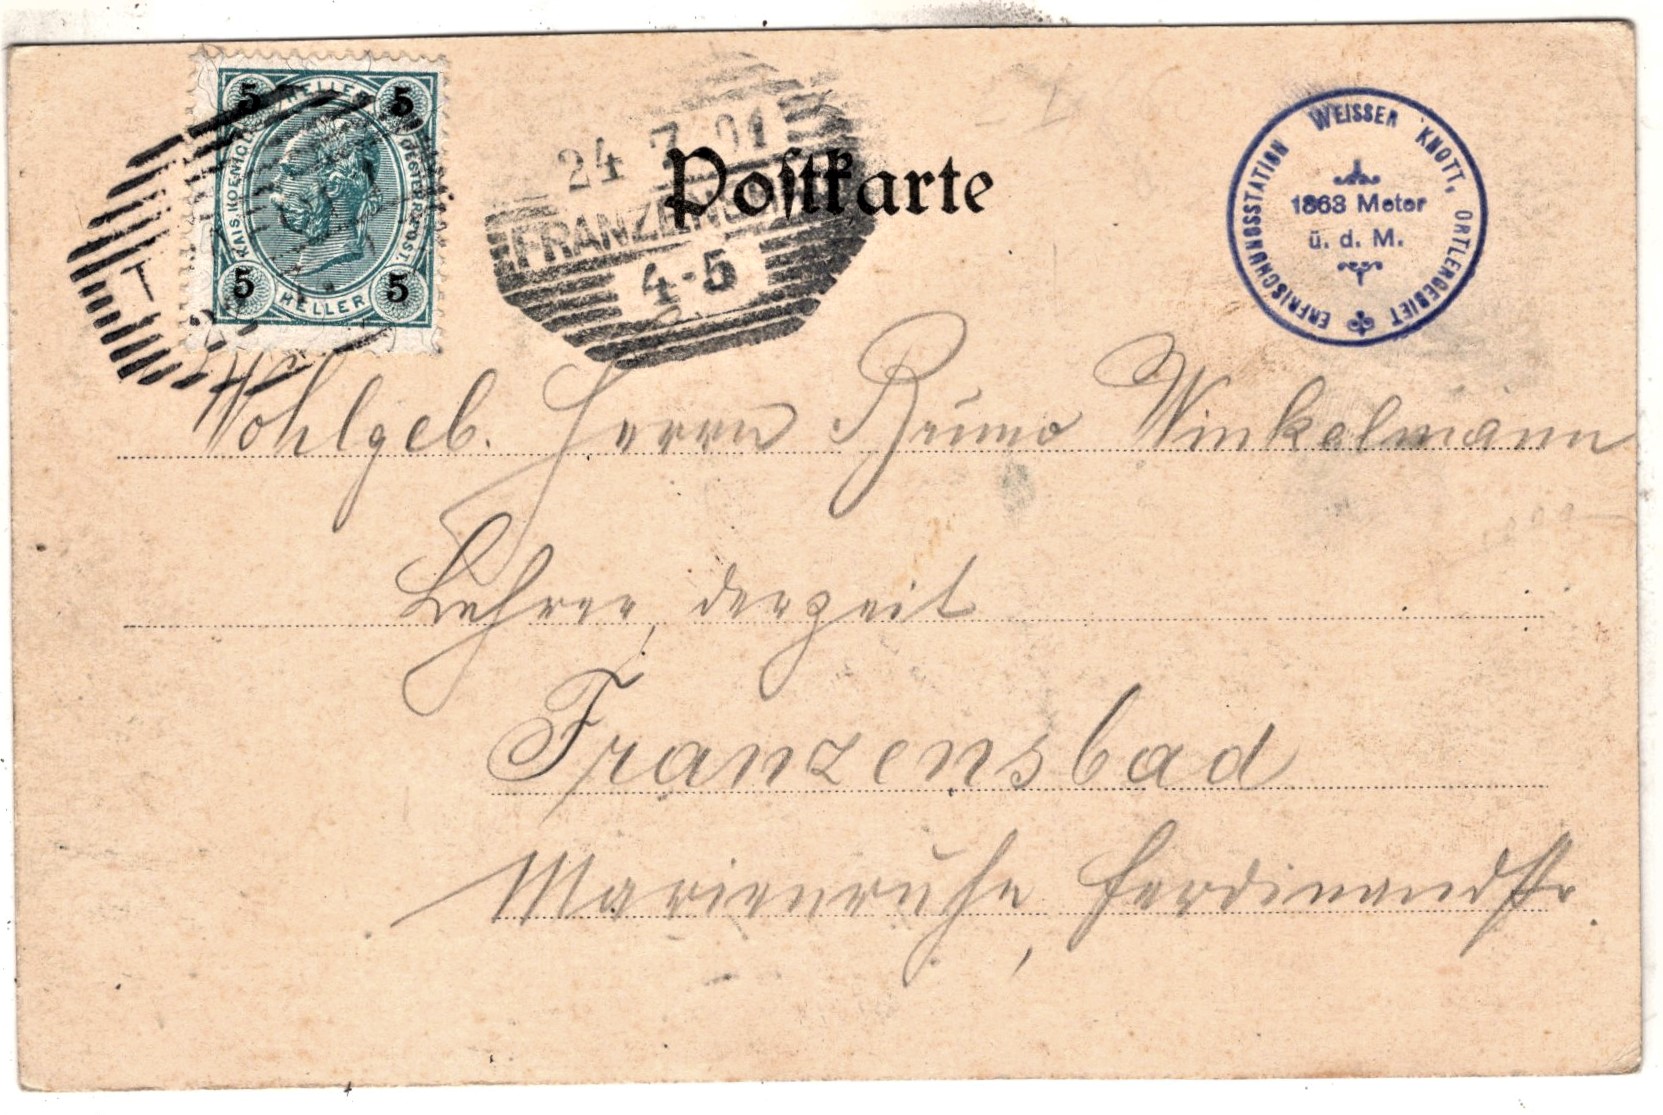 5 HELLER 5
KAIS. KOENIGL. OESTERR. POST.
5 HELLER 5
24 7 01
FRANZENSBAD
4-5
Postkarte
ERFRISCHUNGSSTATION WEISSER KNOTT, ORTLERGEBIET
1863 Meter
ü. d. M.
Wohlgeb. Herrn Bruno Winkelmann
Lehrer, derzeit
Franzensbad
Marienruhe, Ferdinandstr.